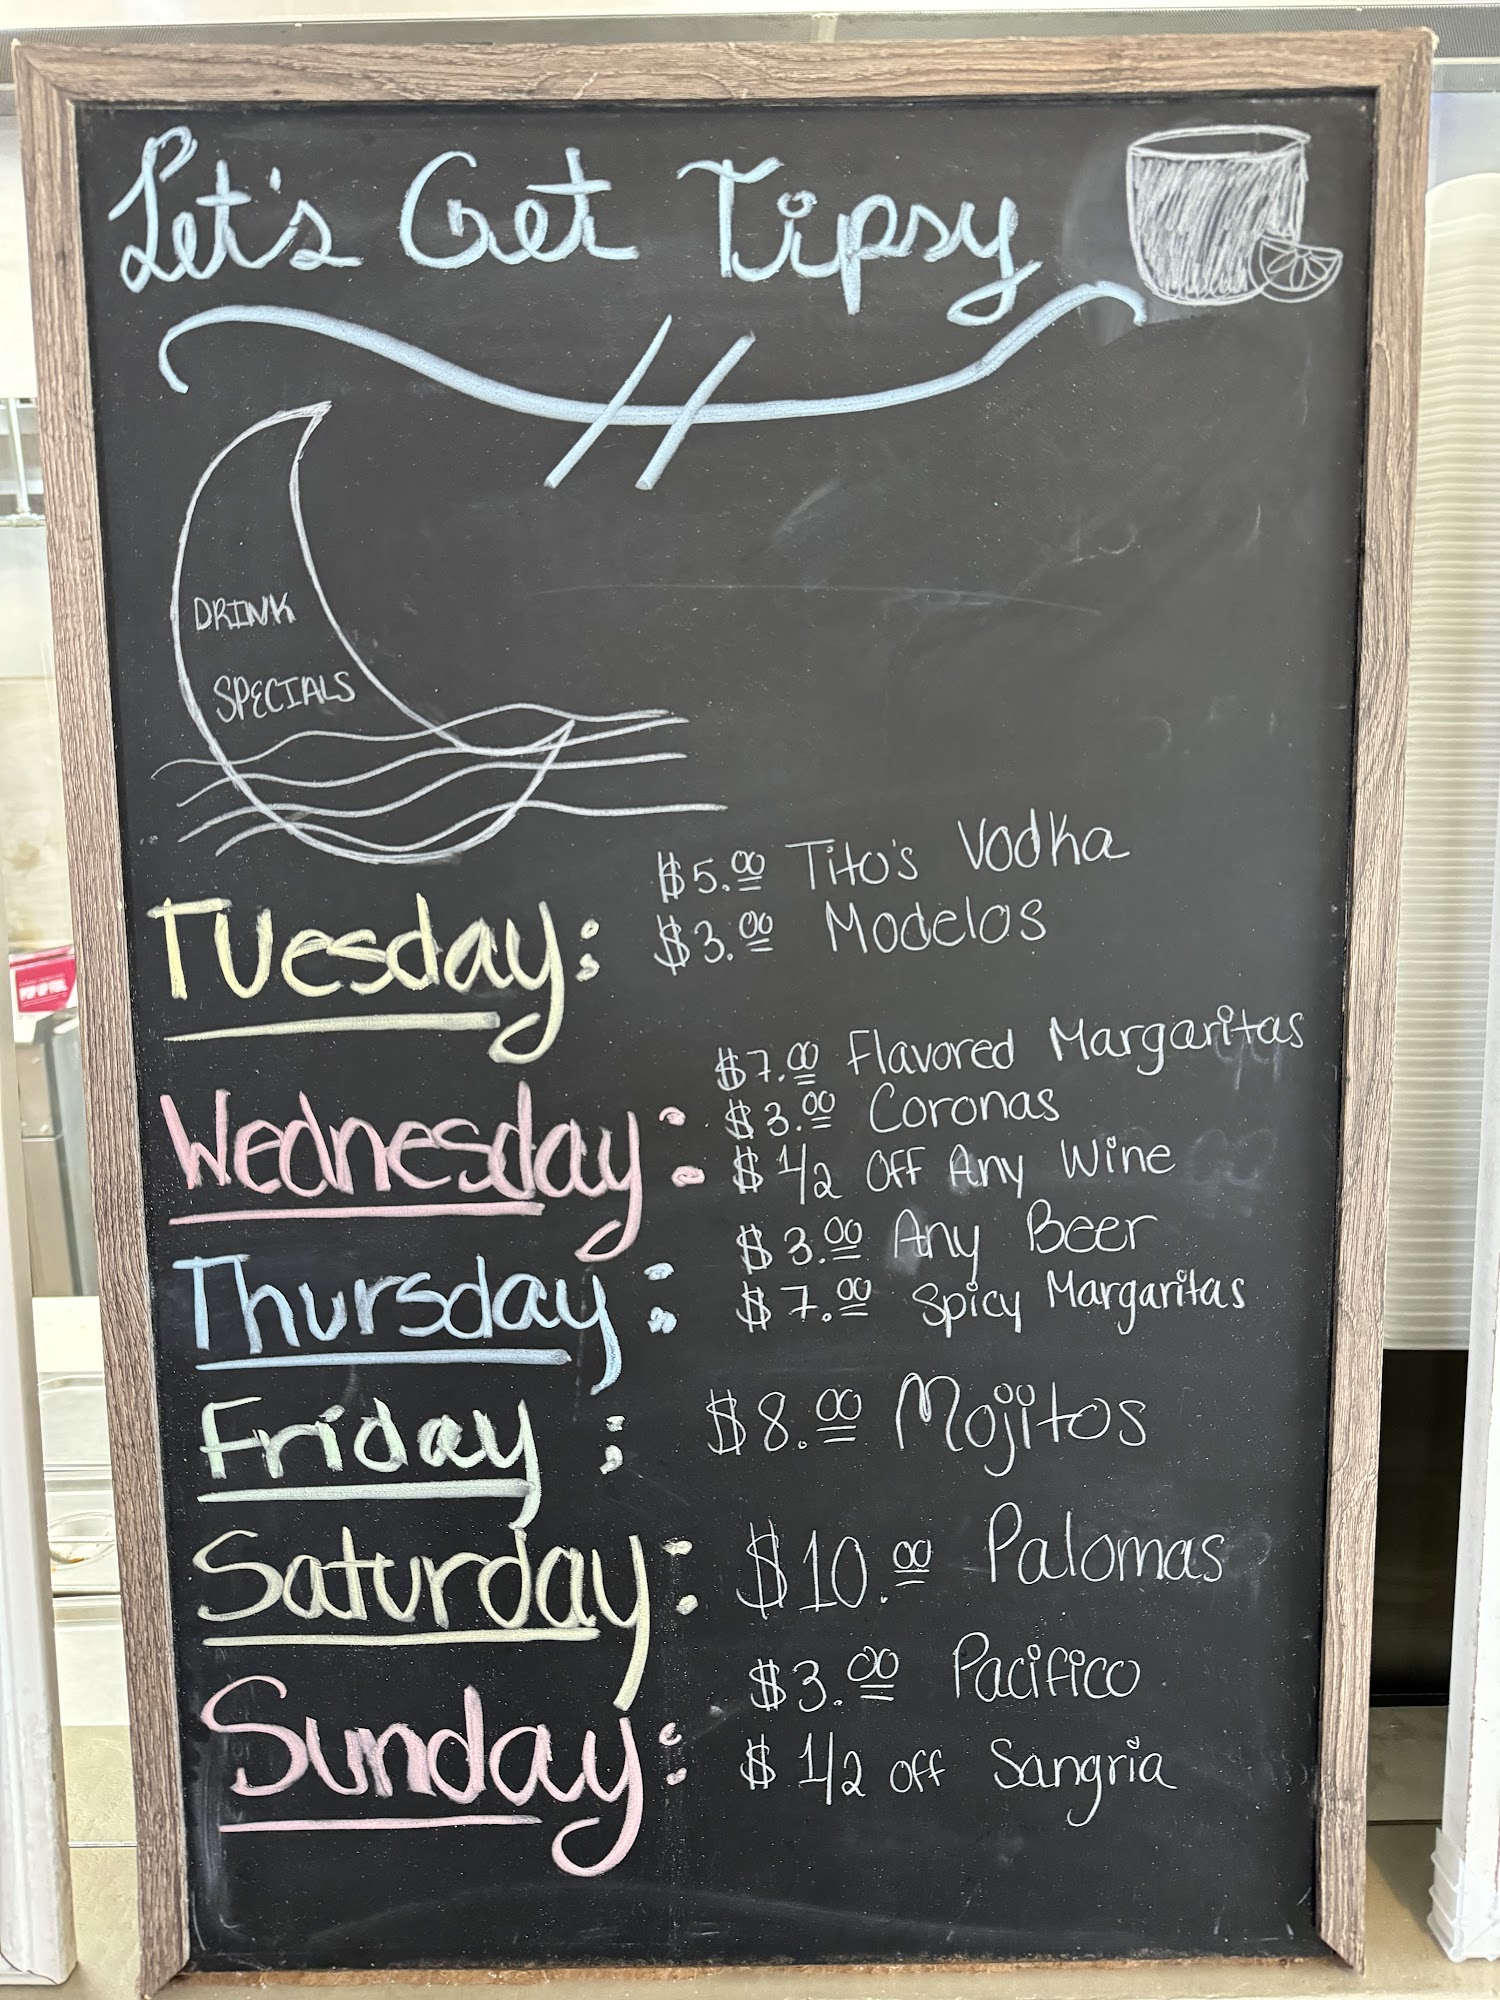 Let's Get Tipsy
DRINK
SPECIALS
Tuesday: $5.00 Tito's Vodka
$3.00 Modelos
Wednesday: $7.00 Flavored Margaritas
$3.00 Coronas
$ 1/2 OFF Any Wine
Thursday: $3.00 Any Beer
$7.00 Spicy Margaritas
Friday: $8.00 Mojitos
Saturday: $10.00 Palomas
Sunday: $3.00 Pacifico
$ 1/2 off Sangria